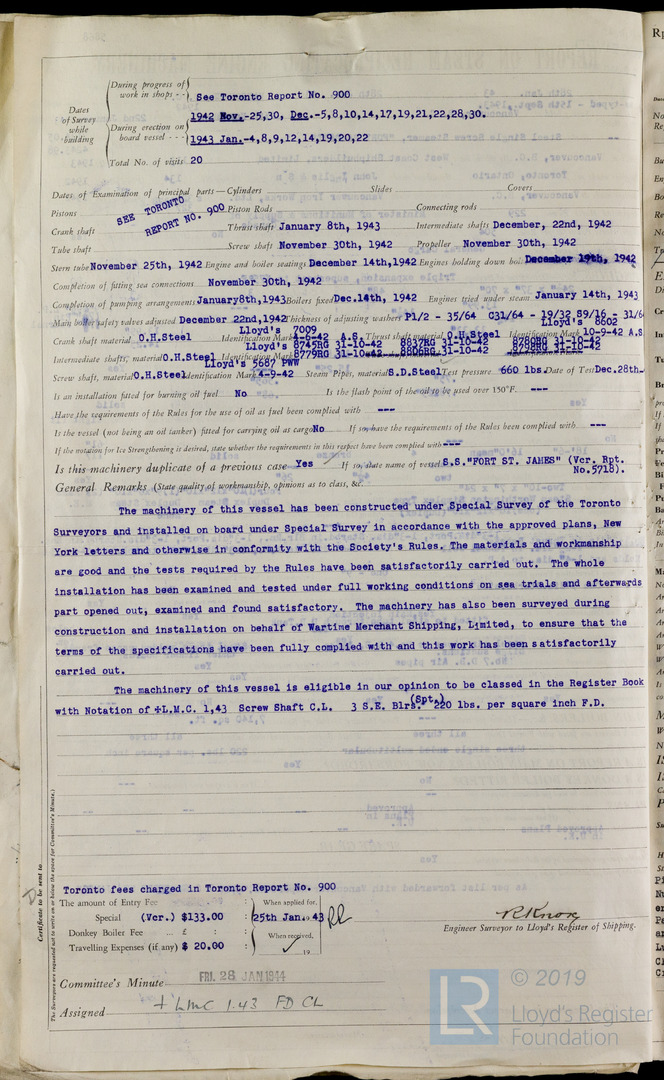 During progress of work in shops - - See Toronto Report No. 900
Dates of Survey while building
1942 Nov.-25,30, Dec.-5,8,10,14,17,19,21,22,28,30.
During erection on board vessel - - - 1943 Jan.-4,8,9,12,14,19,20,22
Total No. of visits 20
Dates of Examination of principal parts—Cylinders Slides Covers
SEE TORONTO REPORT NO. 900
Pistons Piston Rods Connecting rods
Crank shaft Thrust shaft January 8th, 1943 Intermediate shafts December, 22nd, 1942
Tube shaft Screw shaft November 30th, 1942 Propeller November 30th, 1942
Stern tube November 25th, 1942 Engine and boiler seatings December 14th,1942 Engines holding down bolts December 19th, 1942
Completion of fitting sea connections November 30th, 1942
Completion of pumping arrangements January8th,1943 Boilers fixed Dec.14th, 1942 Engines tried under steam January 14th, 1943
Main boiler safety valves adjusted December 22nd,1942 Thickness of adjusting washers P1/2 - 35/64 C31/64 - 19/32 S9/16 - 31/6
Lloyd's 7009 Lloyd's 8602
Crank shaft material O.H.Steel Identification Mark 4-6-42 A.S. Thrust shaft material O.H.Steel Identification Mark 10-9-42 A.S
Lloyd's 8745RG 31-10-42 8837RG 31-10-42 8780RG 31-10-42
Intermediate shafts, material O.H.Steel Identification Marks 8779RG 31-10-42 8806RG 31-10-42 31-10-42
Lloyd's 5687 PWW
Screw shaft, material O.H.Steel Identification Mark 4-9-42 Steam Pipes, material S.D.Steel Test pressure 660 lbs. Date of Test Dec.28th-
Is an installation fitted for burning oil fuel No Is the flash point of the oil to be used over 150°F. ---
Have the requirements of the Rules for the use of oil as fuel been complied with ---
Is the vessel (not being an oil tanker) fitted for carrying oil as cargo No If so, have the requirements of the Rules been complied with ---
If the notation for Ice Strengthening is desired, state whether the requirements in this respect have been complied with ---
Is this machinery duplicate of a previous case Yes If so, state name of vessel S.S."FORT ST. JAMES" (Vcr. Rpt. No.5718).
General Remarks (State quality of workmanship, opinions as to class, &c.
The machinery of this vessel has been constructed under Special Survey of the Toronto
Surveyors and installed on board under Special Survey in accordance with the approved plans, New
York letters and otherwise in conformity with the Society's Rules. The materials and workmanship
are good and the tests required by the Rules have been satisfactorily carried out. The whole
installation has been examined and tested under full working conditions on sea trials and afterwards
part opened out, examined and found satisfactory. The machinery has also been surveyed during
construction and installation on behalf of Wartime Merchant Shipping, Limited, to ensure that the
terms of the specifications have been fully complied with and this work has been satisfactorily
carried out.
The machinery of this vessel is eligible in our opinion to be classed in the Register Book
with Notation of ✠L.M.C. 1,43 Screw Shaft C.L. 3 S.E. Blrs. (Spt.) 220 lbs. per square inch F.D.
Certificate to be sent to
(The Surveyors are requested not to write on or below the space for Committee's Minute.)
Toronto fees charged in Toronto Report No. 900
The amount of Entry Fee : When applied for,
Special (Vcr.) $133.00 : 25th Jan. 19 43
Donkey Boiler Fee ... £ : When received,
Travelling Expenses (if any) $ 20.00 : 19
R Knox
Engineer Surveyor to Lloyd's Register of Shipping.
Committee's Minute FRI. 28 JAN 1944
Assigned + LMC 1.43 FD CL
LR © 2019
Lloyd's Register
Foundation